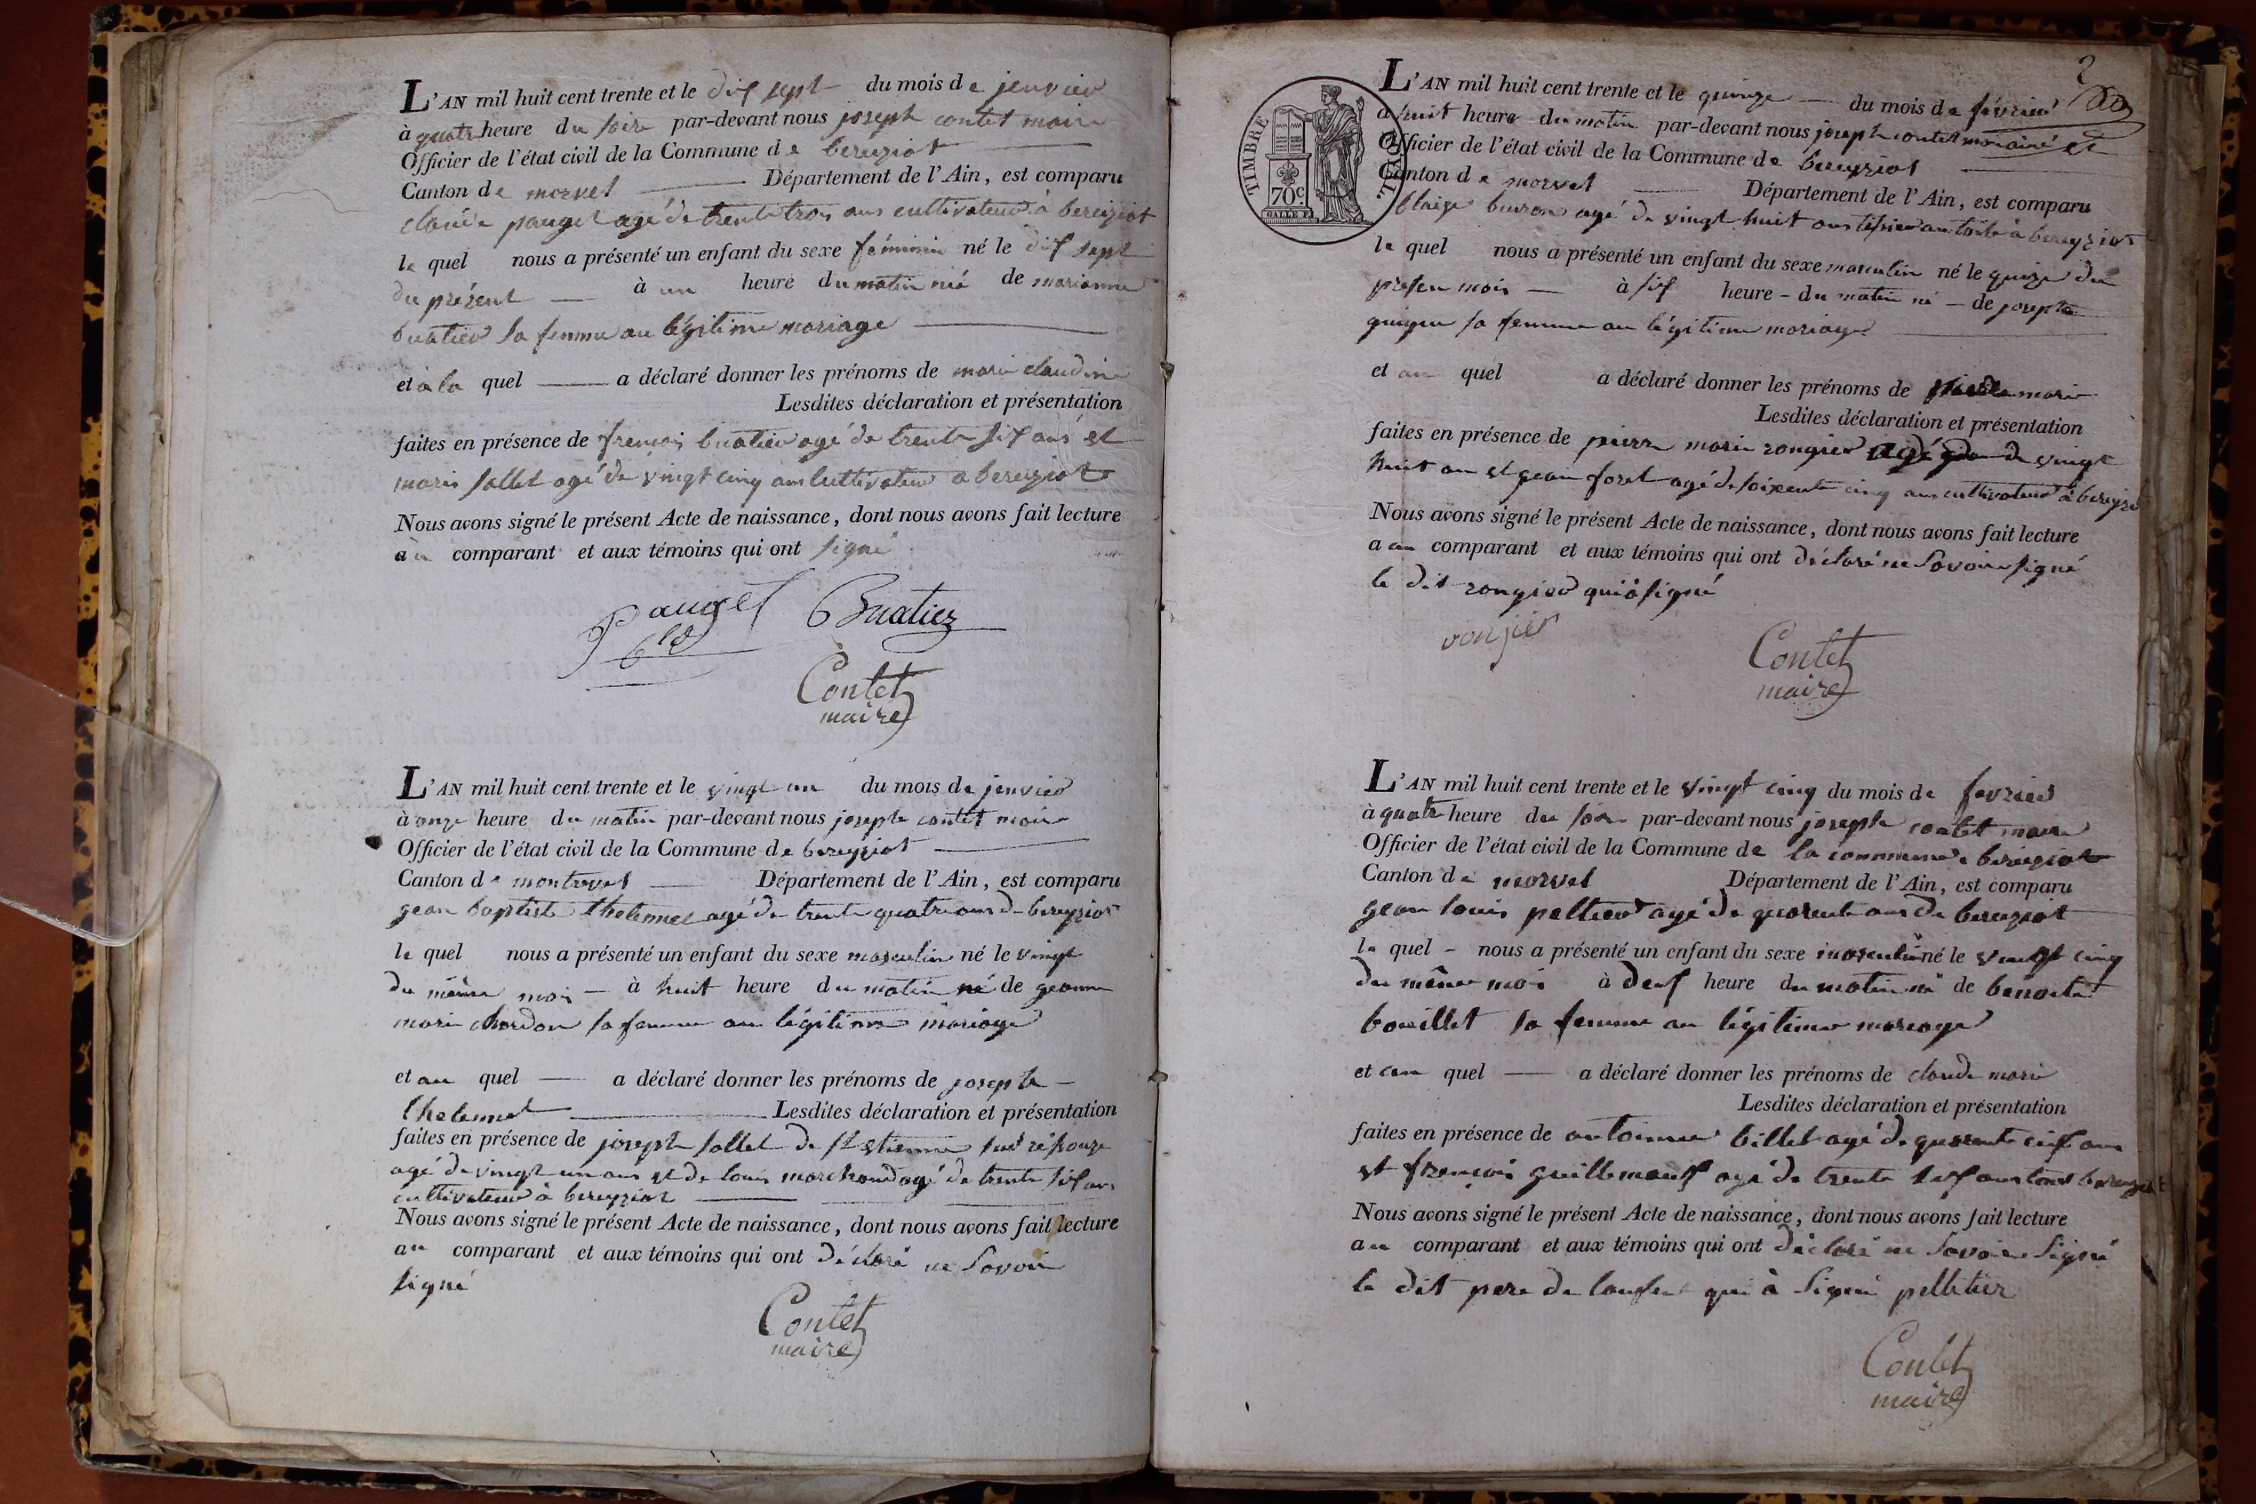 L'AN mil huit cent trente et le dix sept du mois de jenvier
à quatr heure du soire par-devant nous joseph contet maire
Officier de l'état civil de la Commune de bereyziat
Canton de morvel Département de l'Ain, est comparu
claude pauget agé de trente trois ans cultivateur à bereiziat
le quel nous a présenté un enfant du sexe féminin né le dix sept
du présent à un heure du matin née de marianne
buatier sa femme au légitime mariage
et à la quel a déclaré donner les prénoms de marie claudine
Lesdites déclaration et présentation
faites en présence de françois buatier agé de trente six ans et
marie sallet agé de vingt cinq ans cultivateur a bereyziat
Nous avons signé le présent Acte de naissance, dont nous avons fait lecture
au comparant et aux témoins qui ont signé
Pauget Buatier
Contet
maire
L'AN mil huit cent trente et le vingt un du mois de jenvier
à onze heure du matin par-devant nous joseph contet maire
Officier de l'état civil de la Commune de bereyziat
Canton de montrevel Département de l'Ain, est comparu
gean baptiste thelemet agé de trente quatre ans de bereyziat
le quel nous a présenté un enfant du sexe masculin né le vingt
du même mois à huit heure du matin né de geanne
marie chordon sa femme au légitime mariage
et au quel a déclaré donner les prénoms de joseph
thelemet Lesdites déclaration et présentation
faites en présence de joseph sallet de st etienne sur résouze
agé de vingt un ans et de louis marchand agé de trente six ans
cultivateur à bereyziat
Nous avons signé le présent Acte de naissance, dont nous avons fait lecture
au comparant et aux témoins qui ont déclaré ne savoir
signé
Contet
maire
2
TIMBRE ROYAL
70 c.
L'AN mil huit cent trente et le quinze du mois de février
à huit heure du matin par-devant nous joseph contet
Officier de l'état civil de la Commune de bereyziat
Canton de morvel Département de l'Ain, est comparu
blaize buiron agé de vingt huit ans tisier en toile à bereyziat
le quel nous a présenté un enfant du sexe masculin né le quize du
presen mois à six heure du matin né de josepte
guigue sa femme au légitime mariage
et au quel a déclaré donner les prénoms de marie
Lesdites déclaration et présentation
faites en présence de pierre marie rongier agé de vingt
huit an et gean foret agé de soixente cinq ans cultivateur à bereyzia
Nous avons signé le présent Acte de naissance, dont nous avons fait lecture
a au comparant et aux témoins qui ont déclaré ne savoir signé
le dit rongier qui à signé
ronjier
Contet
maire
L'AN mil huit cent trente et le vingt cinq du mois de fevrier
à quatr heure du soir par-devant nous joseph contet maire
Officier de l'état civil de la Commune de la commune de bereyziat
Canton de morvel Département de l'Ain, est comparu
gean louis peltier agé de quarente ans de bereyziat
le quel nous a présenté un enfant du sexe masculin né le vingt cinq
du même mois à deux heure du matin né de benoite
bouillet sa femme au légitime mariage
et au quel a déclaré donner les prénoms de claude marie
Lesdites déclaration et présentation
faites en présence de antoinne billet agé de quarente six ans
et françois guillemauf agé de trente ans
Nous avons signé le présent Acte de naissance, dont nous avons fait lecture
au comparant et aux témoins qui ont déclaré ne savoir signé
le dit pere de lenfent qui à signé pelletier
Contet
maire